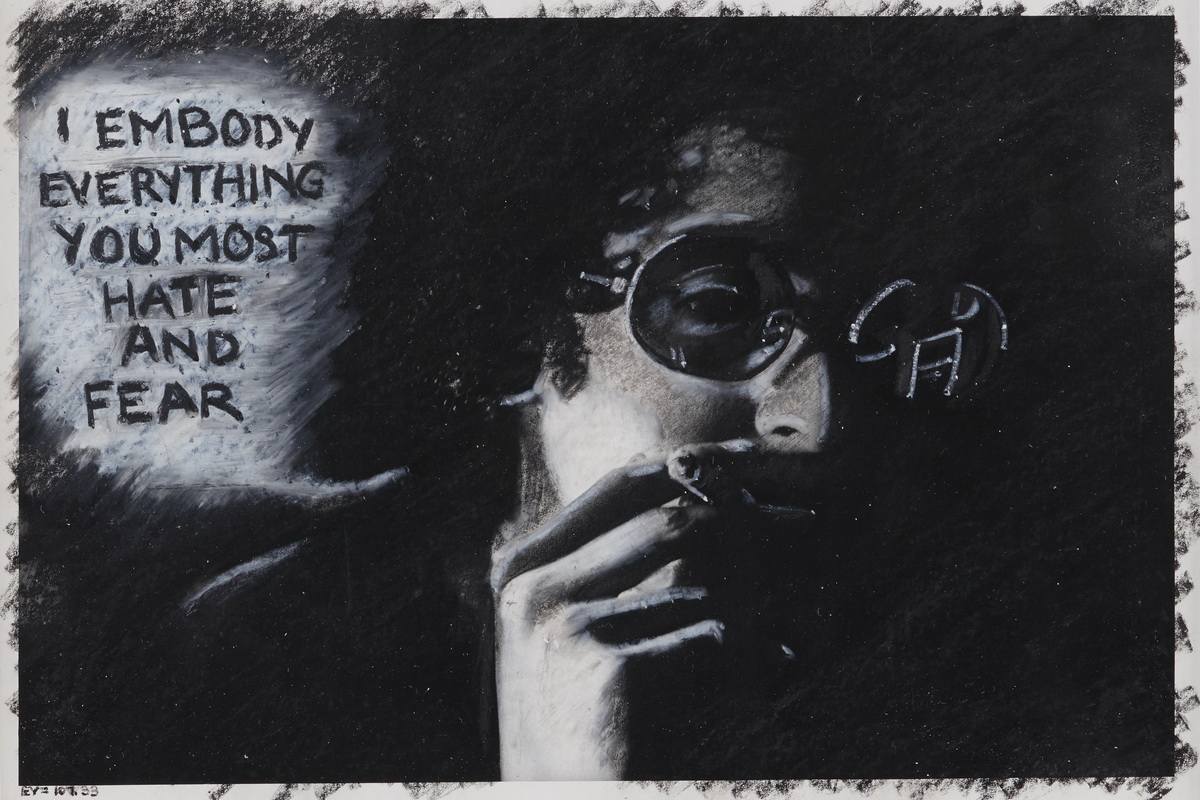 I EMBODY
EVERYTHING
YOU MOST
HATE
AND
FEAR